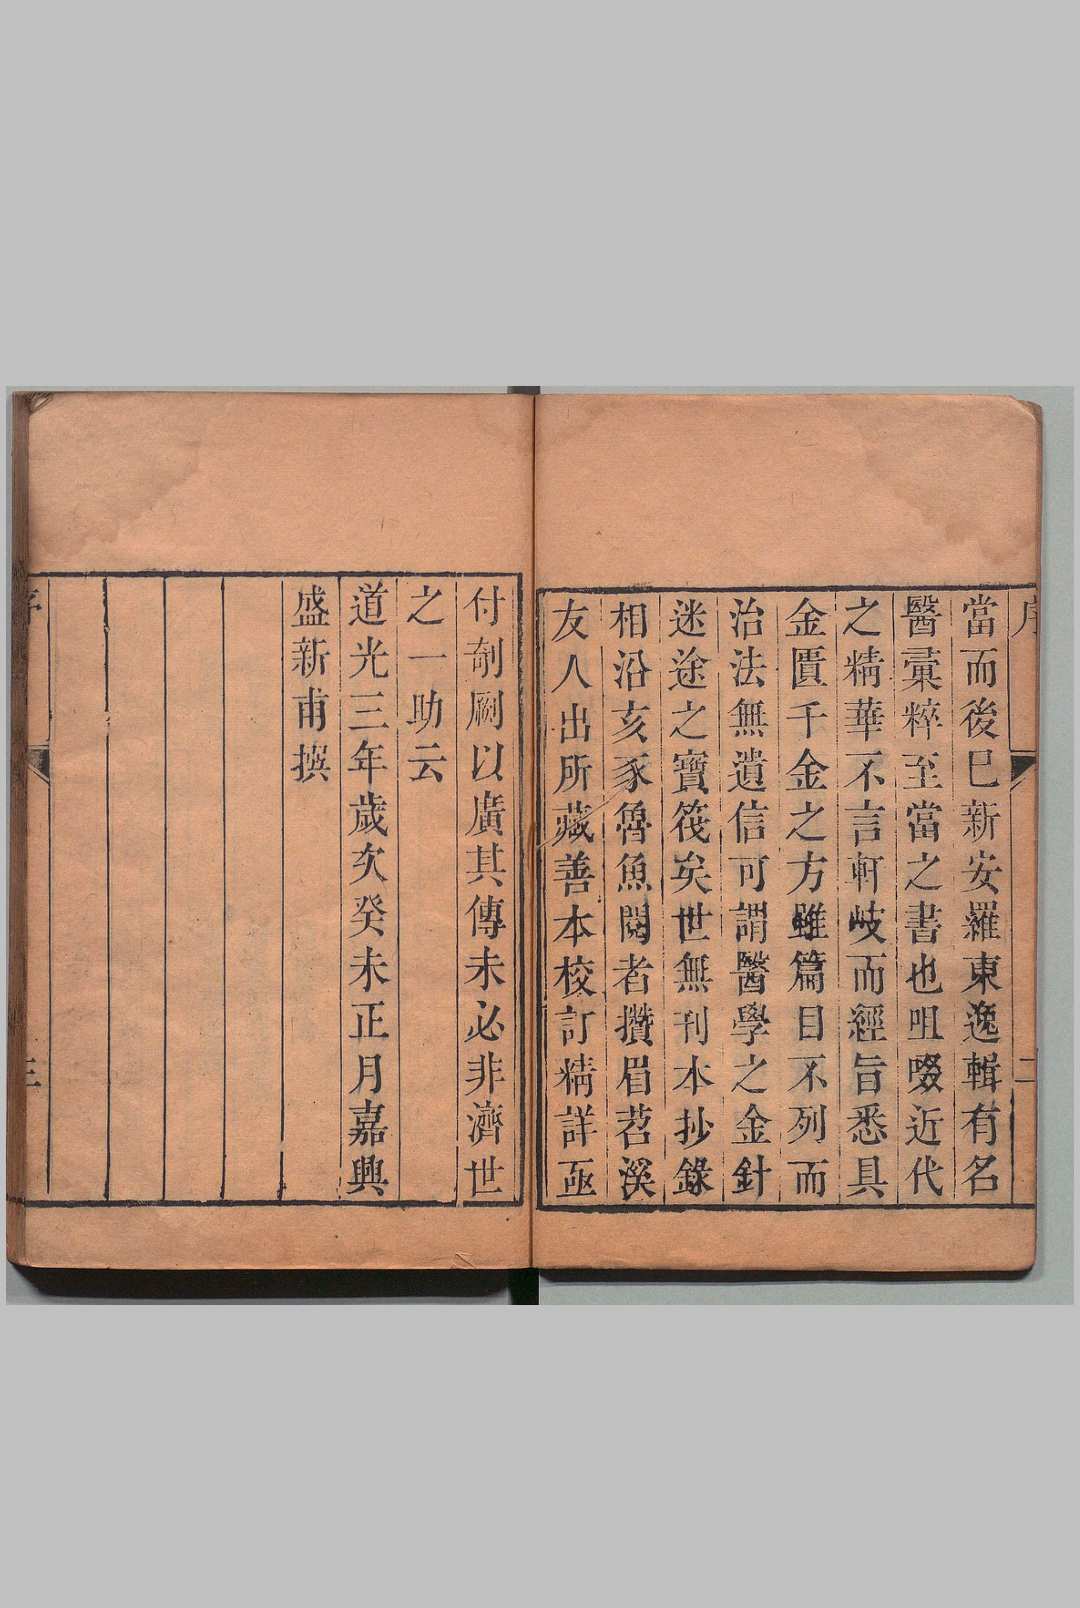 序
二
當而後巳新安羅東逸輯有名
醫彙粹至當之書也咀啜近代
之精華不言軒岐而經旨悉具
金匱千金之方雖篇目不列而
治法無遺信可謂醫學之金針
迷途之寶筏矣世無刊本抄錄
相沿亥豕魯魚閱者攢眉苕溪
友人出所藏善本校訂精詳亟
付剞劂以廣其傳未必非濟世
之一助云
道光三年歲次癸未正月嘉興
盛新甫撰
序
三